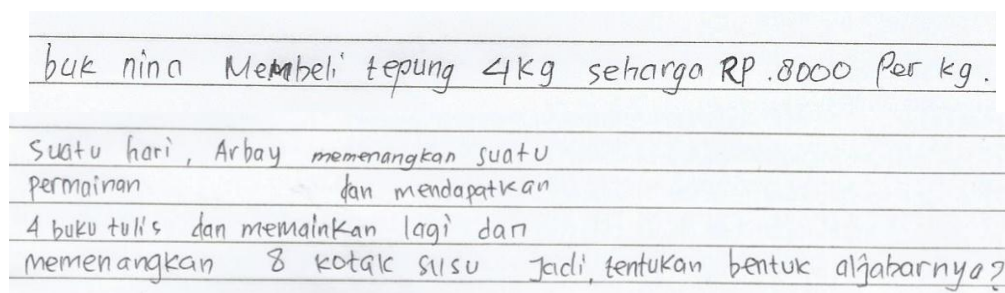 buk nina Membeli tepung 4kg seharga RP.8000 Per kg.
Suatu hari, Arbay memenangkan suatu
Permainan dan mendapatkan
4 buku tulis dan memainkan lagi dan
memenangkan 8 kotak susu Jadi, tentukan bentuk aljabarnya?